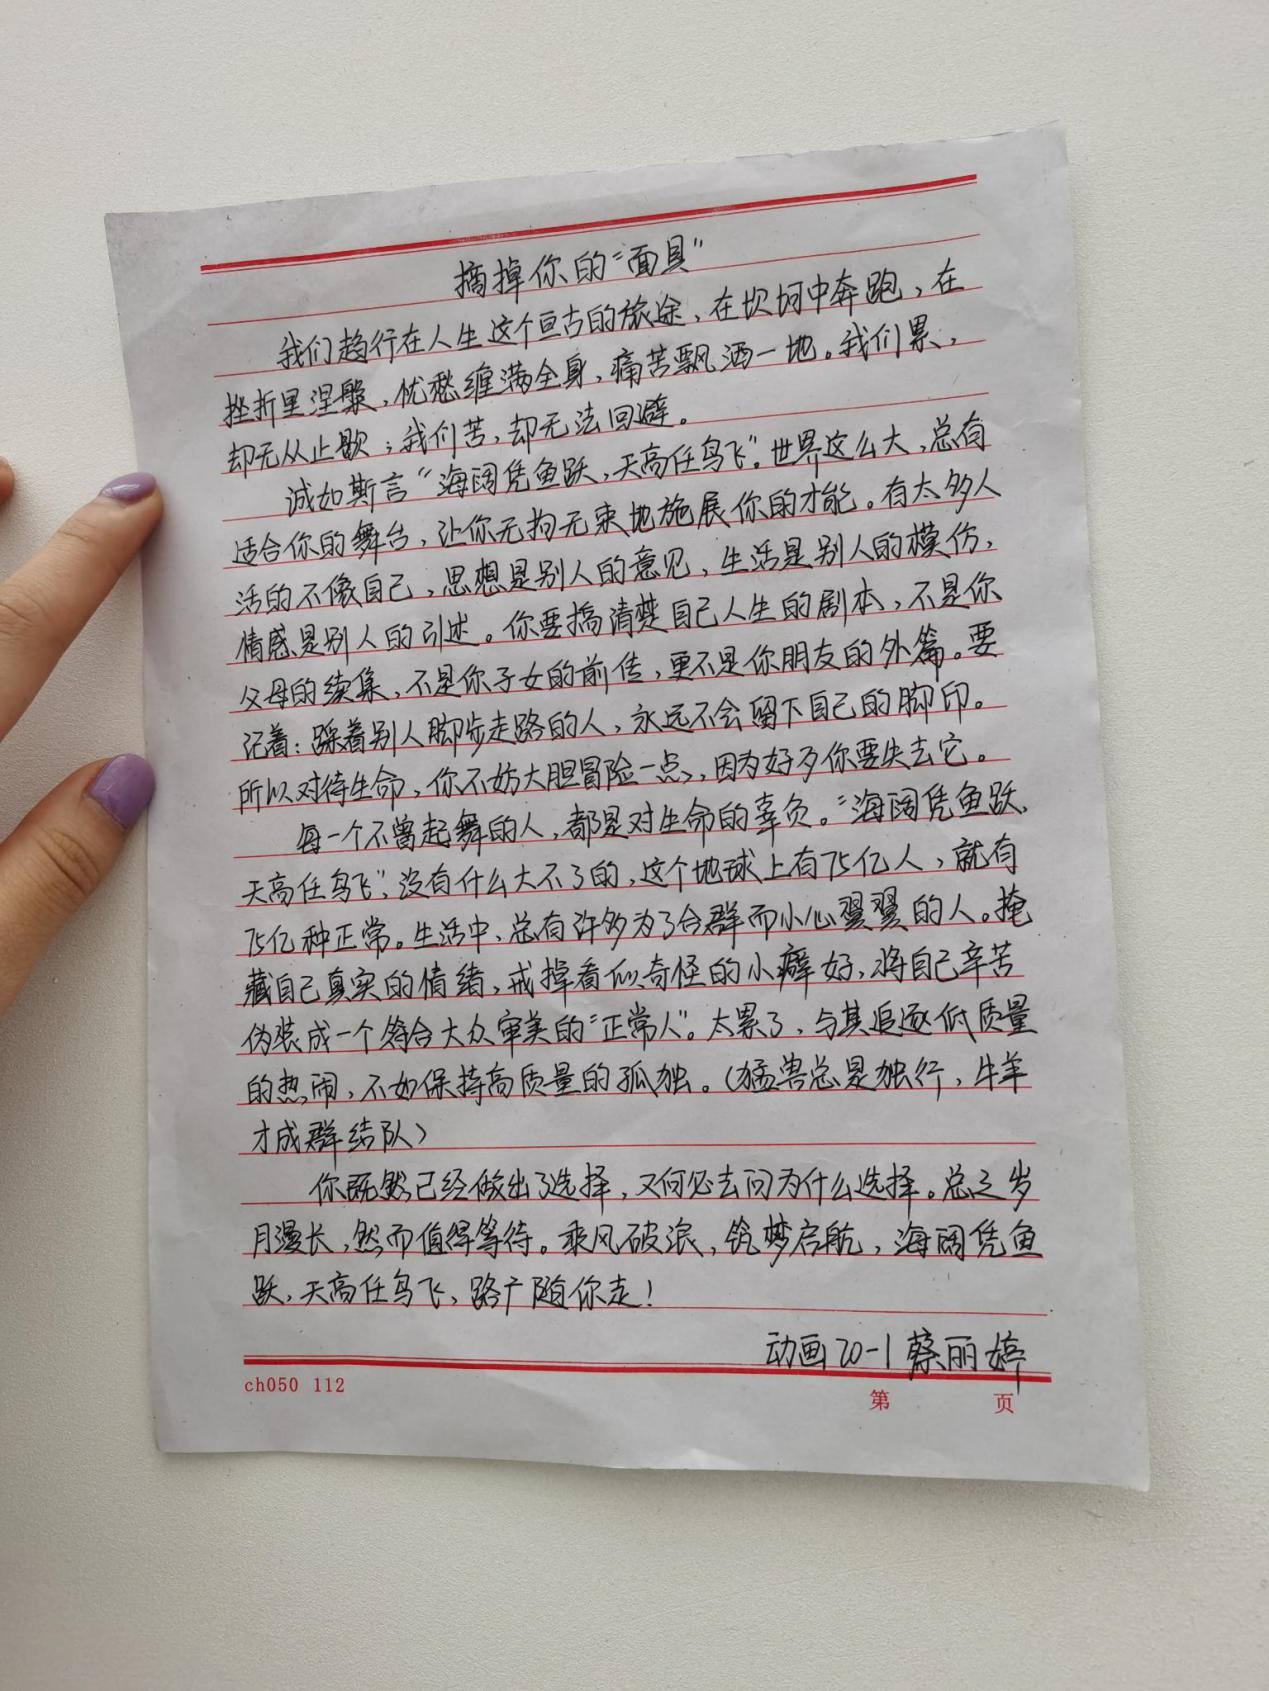 摘掉你的“面具”
我们趋行在人生这个亘古的旅途，在坎坷中奔跑，在
挫折里涅槃，忧愁缠满全身，痛苦飘洒一地。我们累，
却无从止歇；我们苦，却无法回避。
诚如斯言“海阔凭鱼跃，天高任鸟飞”。世界这么大，总有
适合你的舞台，让你无拘无束地施展你的才能。有太多人
活的不像自己，思想是别人的意见，生活是别人的模仿，
情感是别人的引述。你要搞清楚自己人生的剧本，不是你
父母的续集，不是你子女的前传，更不是你朋友的外篇。要
记着：踩着别人脚步走路的人，永远不会留下自己的脚印。
所以对待生命，你不妨大胆冒险一点，因为好歹你要失去它。
每一个不曾起舞的人，都是对生命的辜负。“海阔凭鱼跃，
天高任鸟飞”，没有什么大不了的，这个地球上有75亿人，就有
75亿种正常。生活中，总有许多为了合群而小心翼翼的人。掩
藏自己真实的情绪，戒掉看似奇怪的小癖好，将自己辛苦
伪装成一个符合大众审美的“正常人”。太累了，与其追逐低质量
的热闹，不如保持高质量的孤独。（猛兽总是独行，牛羊
才成群结队）
你既然已经做出了选择，又何必去问为什么选择。总之岁
月漫长，然而值得等待。乘风破浪，筑梦启航，海阔凭鱼
跃，天高任鸟飞，路广随你走！
动画20-1 蔡丽婷
ch050 112
第 页